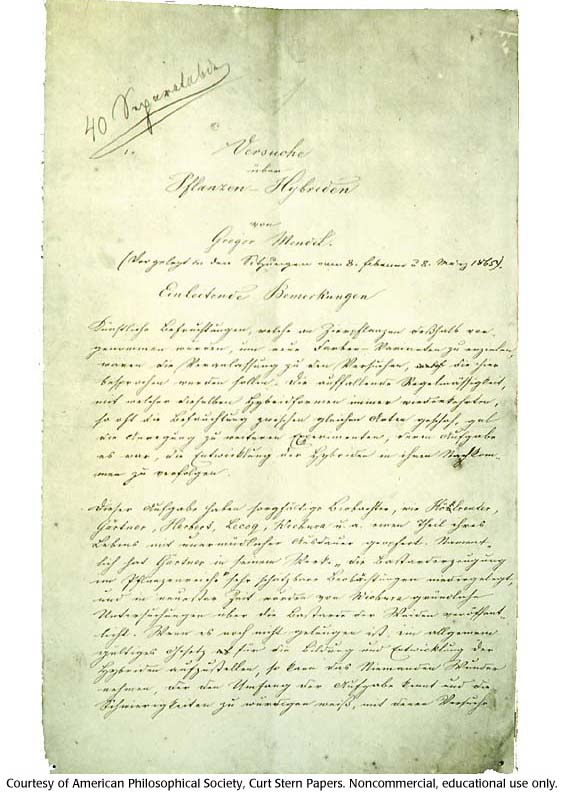 40 Separatabdr
1.
Versuche
über
Pflanzen-Hybriden
von
Gregor Mendel.
(Vorgelegt in den Sitzungen vom 8. Februar u 8. März 1865).
Einleitende Bemerkungen
Künstliche Befruchtungen, welche an Zierpflanzen deßhalb vor-
genommen wurden, um neue Farben-Varianten zu erzielen,
waren die Veranlassung zu den Versuchen, die hier
besprochen werden sollen. Die auffallende Regelmässigkeit,
mit welcher dieselben Hybridformen immer wiederkehrten,
so oft die Befruchtung zwischen gleichen Arten geschah, gab
die Anregung zu weiteren Experimenten, deren Aufgabe
es war, die Entwicklung der Hybriden in ihren Nachkom-
men zu verfolgen.
Dieser Aufgabe haben sorgfältige Beobachter, wie Kölreuter,
Gärtner, Herbert, Lecoq, Wichura u. a. einen Theil ihres
Lebens mit unermüdlicher Ausdauer geopfert. Nament-
lich hat Gärtner in seinem Werke „die Bastarderzeugung
im Pflanzenreiche" sehr schätzbare Beobachtungen niedergelegt,
und in neuester Zeit wurden von Wichura gründliche
Untersuchungen über die Bastarde der Weiden veröffent-
licht. Wenn es noch nicht gelungen ist, ein allgemein
gültiges Gesetz für die Bildung und Entwicklung der
Hybriden aufzustellen, so kann das Niemanden Wunder
nehmen, der den Umfang der Aufgabe kennt und die
Schwierigkeiten zu würdigen weiß, mit denen Versuche
Courtesy of American Philosophical Society, Curt Stern Papers. Noncommercial, educational use only.